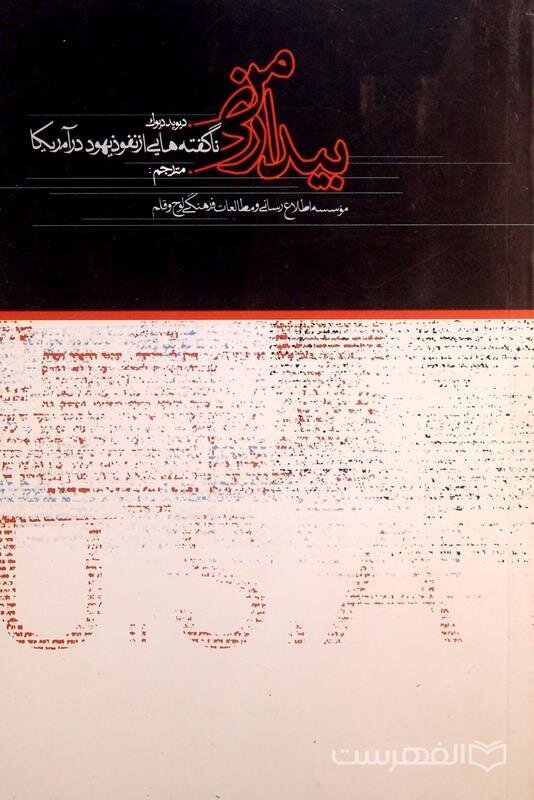 بیداری من
دیوید دیوک
ناگفته‌هایی از نفوذ یهود در آمریکا
مترجم:
موسسه اطلاع رسانی و مطالعات فرهنگی لوح و قلم
U.S.A
الفهرست